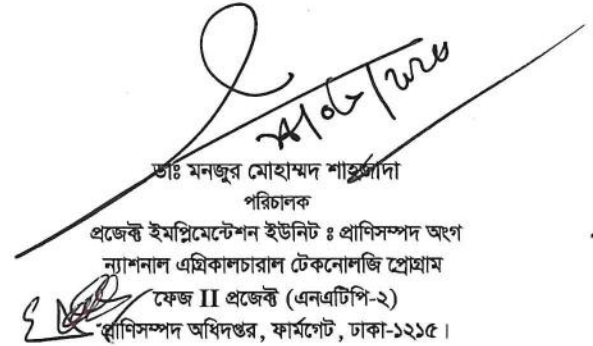 ডাঃ মনজুর মোহাম্মদ শাহজাদা
পরিচালক
প্রজেক্ট ইমপ্লিমেন্টেশন ইউনিট ঃ প্রাণিসম্পদ অংগ
ন্যাশনাল এগ্রিকালচারাল টেকনোলজি প্রোগ্রাম
ফেজ II প্রজেক্ট (এনএটিপি-২)
প্রাণিসম্পদ অধিদপ্তর, ফার্মগেট, ঢাকা-১২১৫।